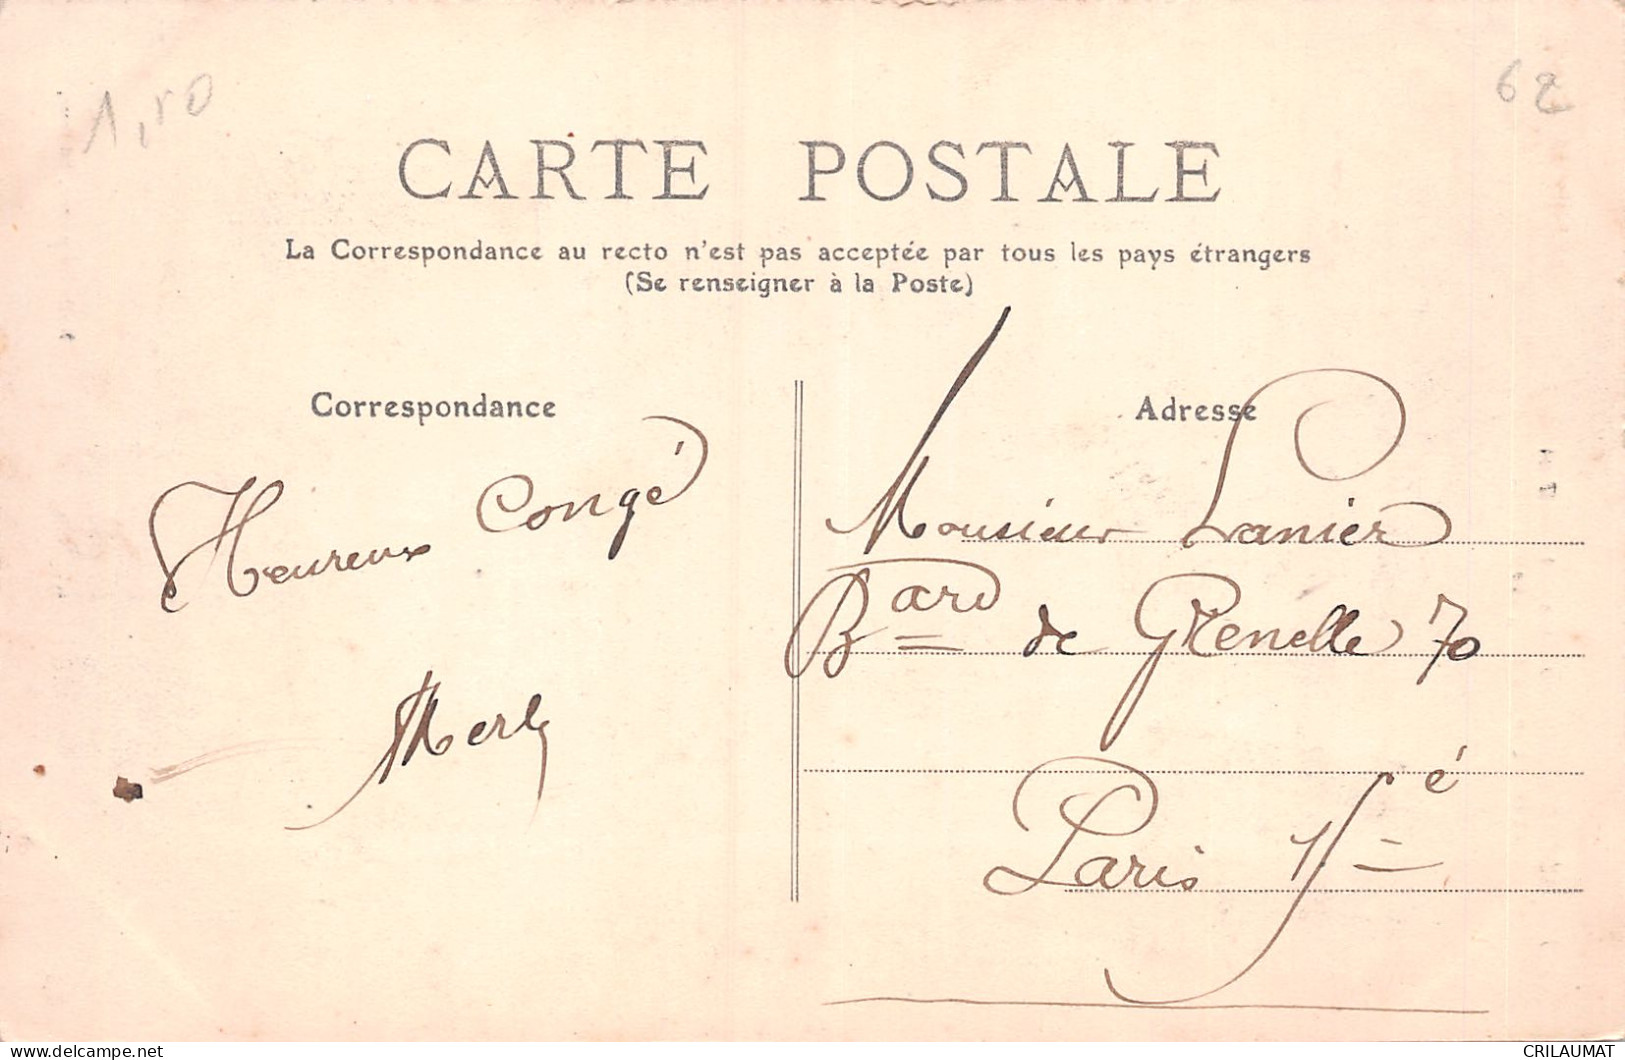 1,50
62
CARTE POSTALE
La Correspondance au recto n'est pas acceptée par tous les pays étrangers
(Se renseigner à la Poste)
Correspondance
Adresse
Heureux Congé
Monsieur Lanier
Bard de Grenelle 70
Paris 15é
CRILAUMAT